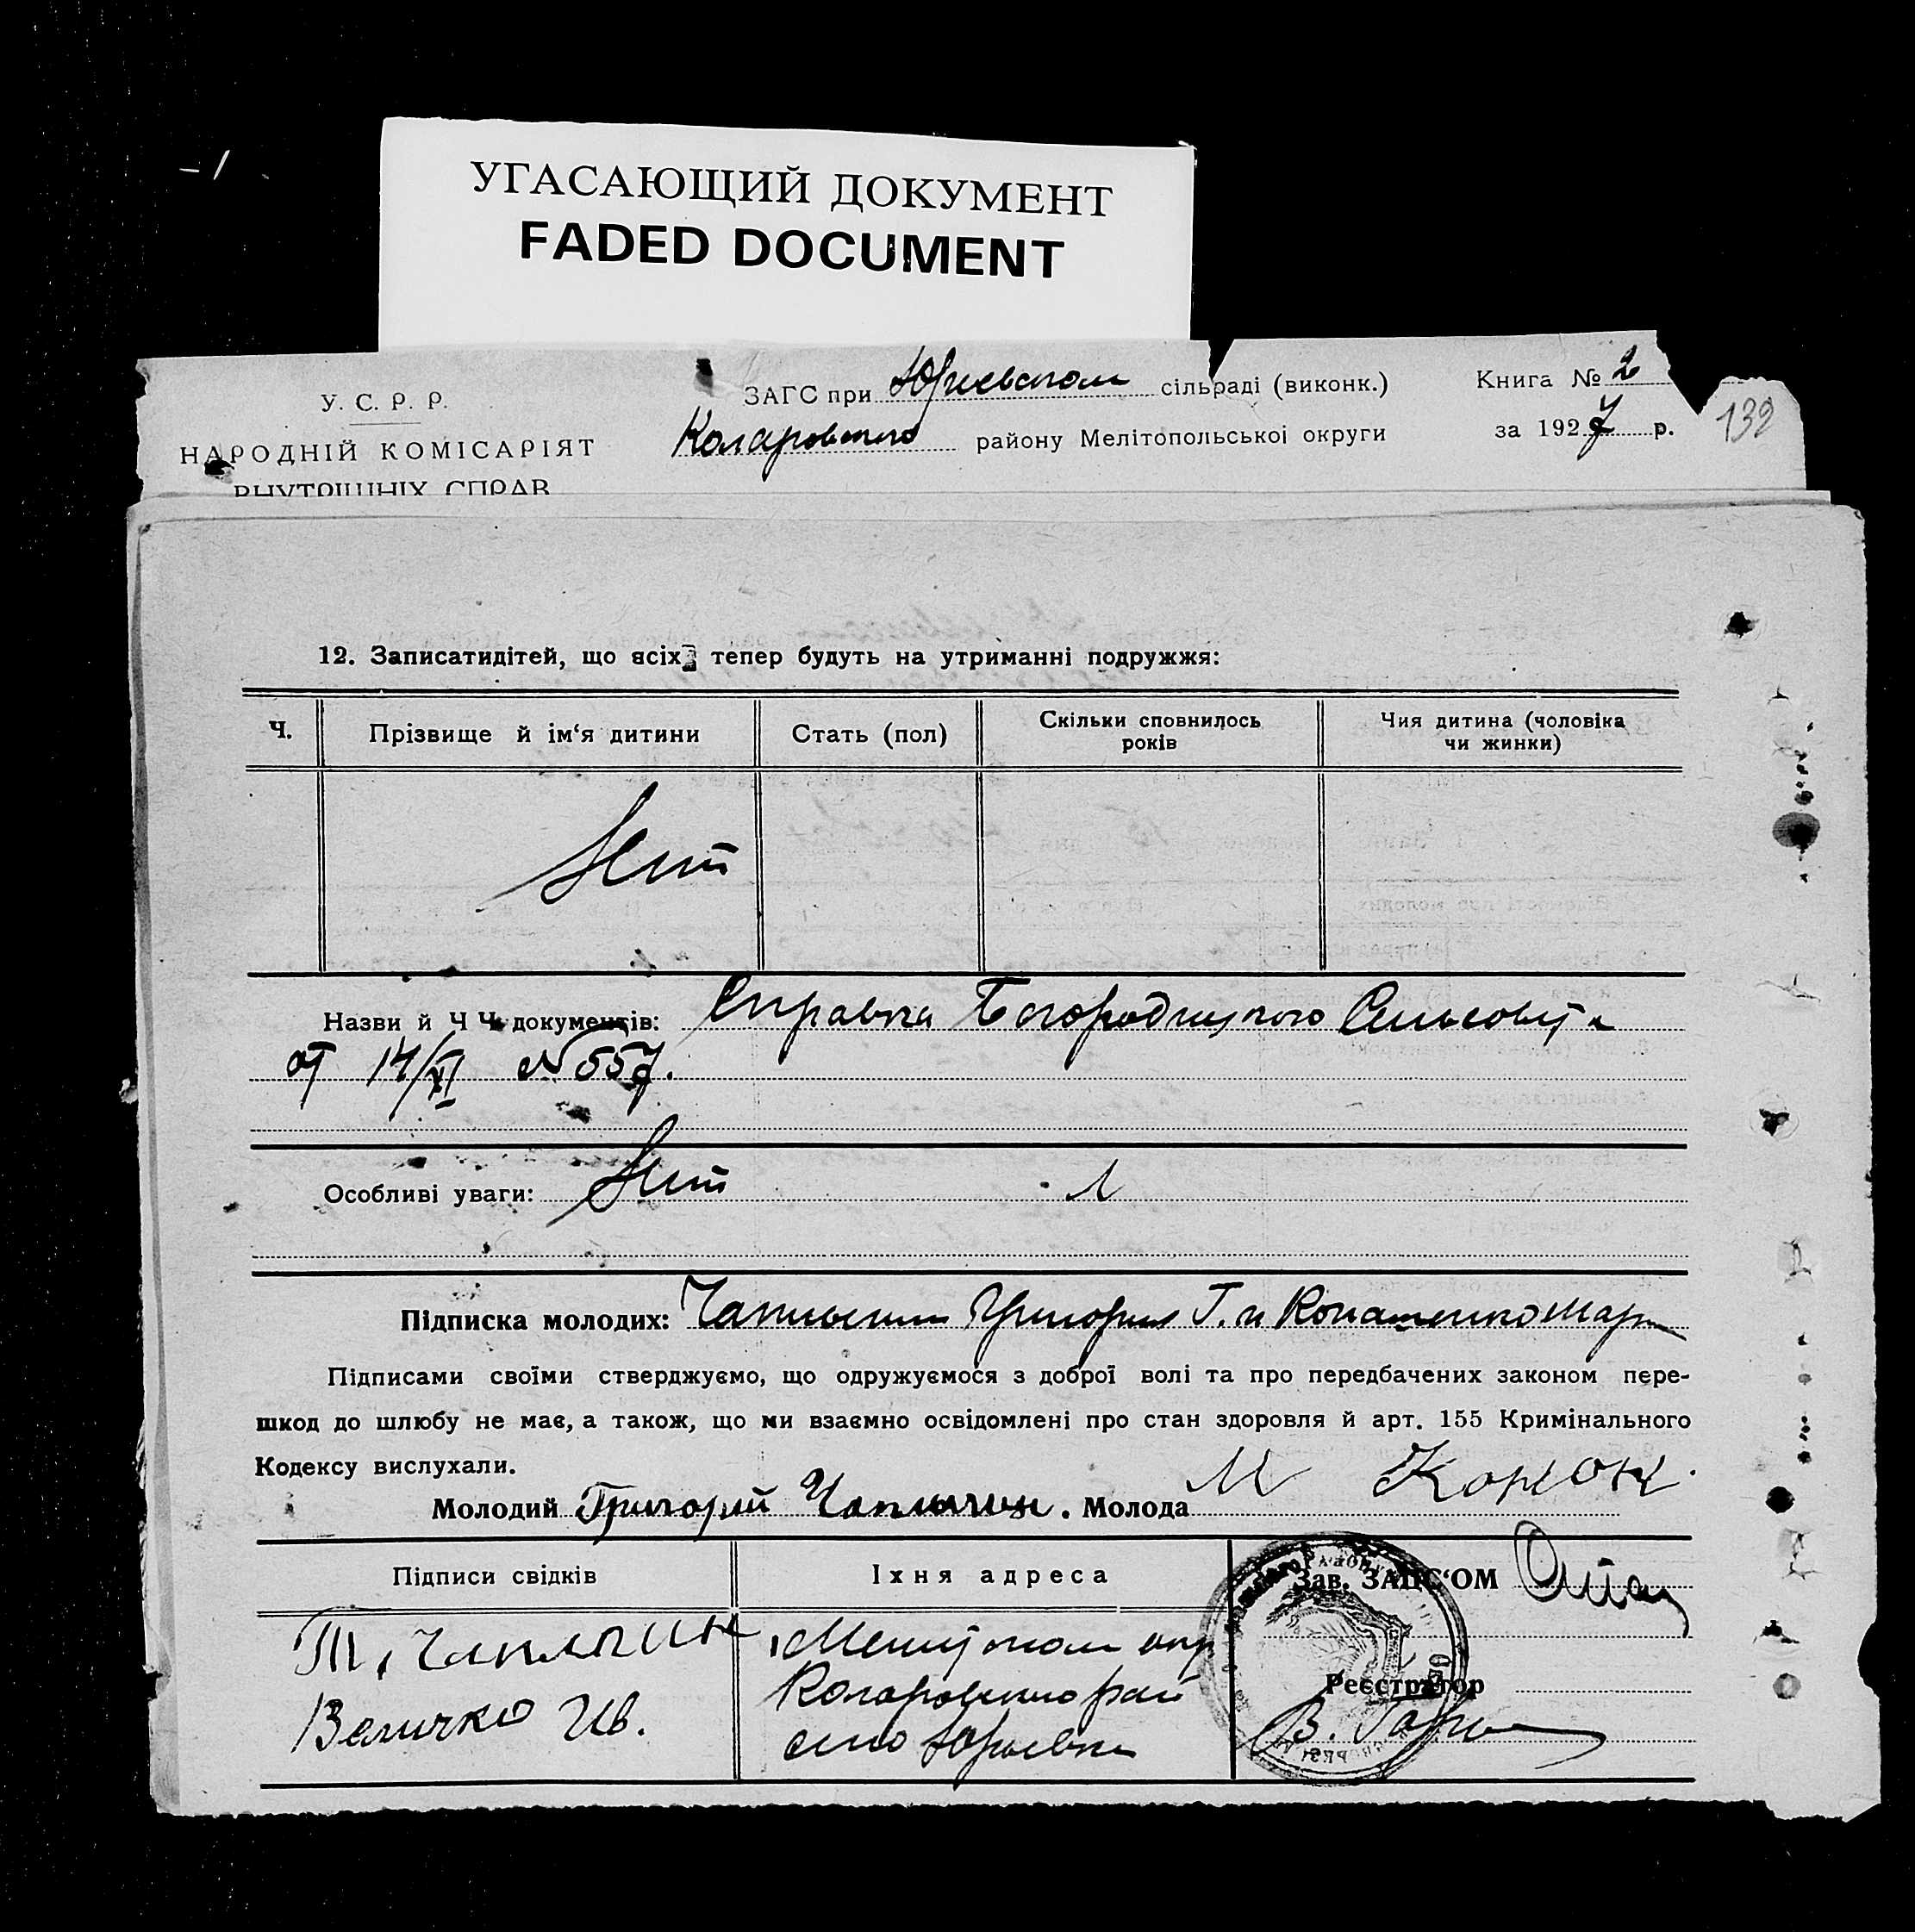 УГАСАЮЩИЙ ДОКУМЕНТ
FADED DOCUMENT
У. С. Р. Р.
НАРОДНІЙ КОМІСАРІЯТ
ВНУТРІШНІХ СПРАВ
ЗАГС при Юрьевском сільраді (виконк.)
Коларовского району Мелітопольськоі округи
Книга № 2
за 1927 р.
132
12. Записатидітей, що всіх тепер будуть на утриманні подружжя:
Ч.
Прізвище й ім‘я дитини
Стать (пол)
Скільки сповнилось
років
Чия дитина (чоловіка
чи жинки)
Нет
Назви й Ч Ч документів: Справка Богородицкого Сельсовета
от 14/XI №557.
Особливі уваги: Нет
Підписка молодих: Чаплыгин Григорий Г. и
Підписами своїми стверджуємо, що одружуємося з доброї волі та про передбачених законом пере-
шкод до шлюбу не має, а також, що ми взаємно освідомлені про стан здоровля й арт. 155 Кримінального
Кодексу вислухали.
Молодий Григорий Чаплыгин. Молода М
Підписи свідків
Їхня адреса
Зав. ЗАГС‘ОМ
Т. Чаплыгин
Величко Ив.
Мелитопол окр
Коларовского рай
село Юрьевка
Реєстратор
В.